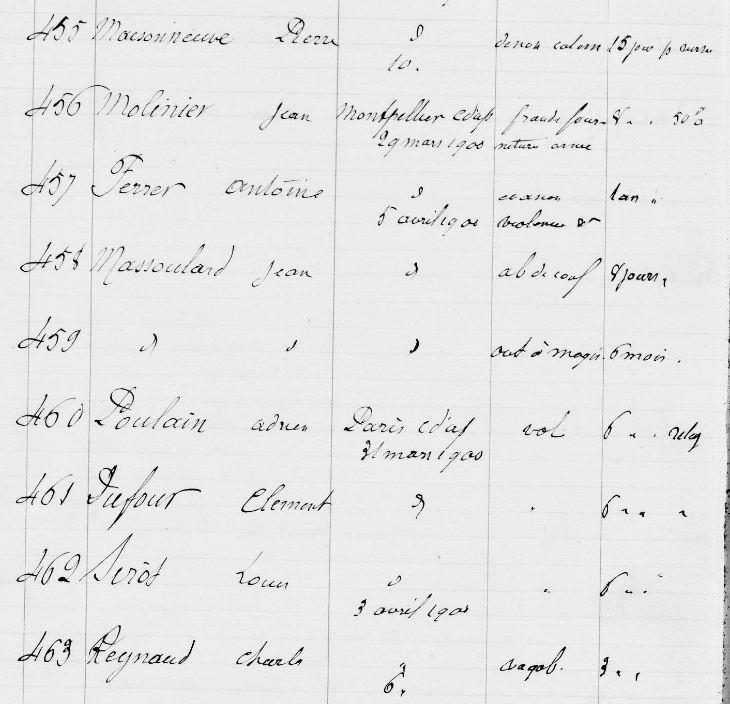 455 Maisonneuve Pierre " denon calom 15 jours p
10.
456 Molinier Jean Montpellier C d'ap fraude four- 8 " . 50 f
29 mars 1900 niture armée
457 Ferrer Antoine " evasion 1 an "
5 avril 1900 violence &
458 Massoulard Jean " ab de conf 8 jours "
459 " " " out à magis. 6 mois .
460 Poulain Adrien Paris C d'ap vol 6 " . releg
31 mars 1900
461 Dufour Clement " " 6 " " "
462 Serôt Louis " " 6 " " "
3 avril 1900
463 Reynaud Charles " vagab. 3 " "
6 "